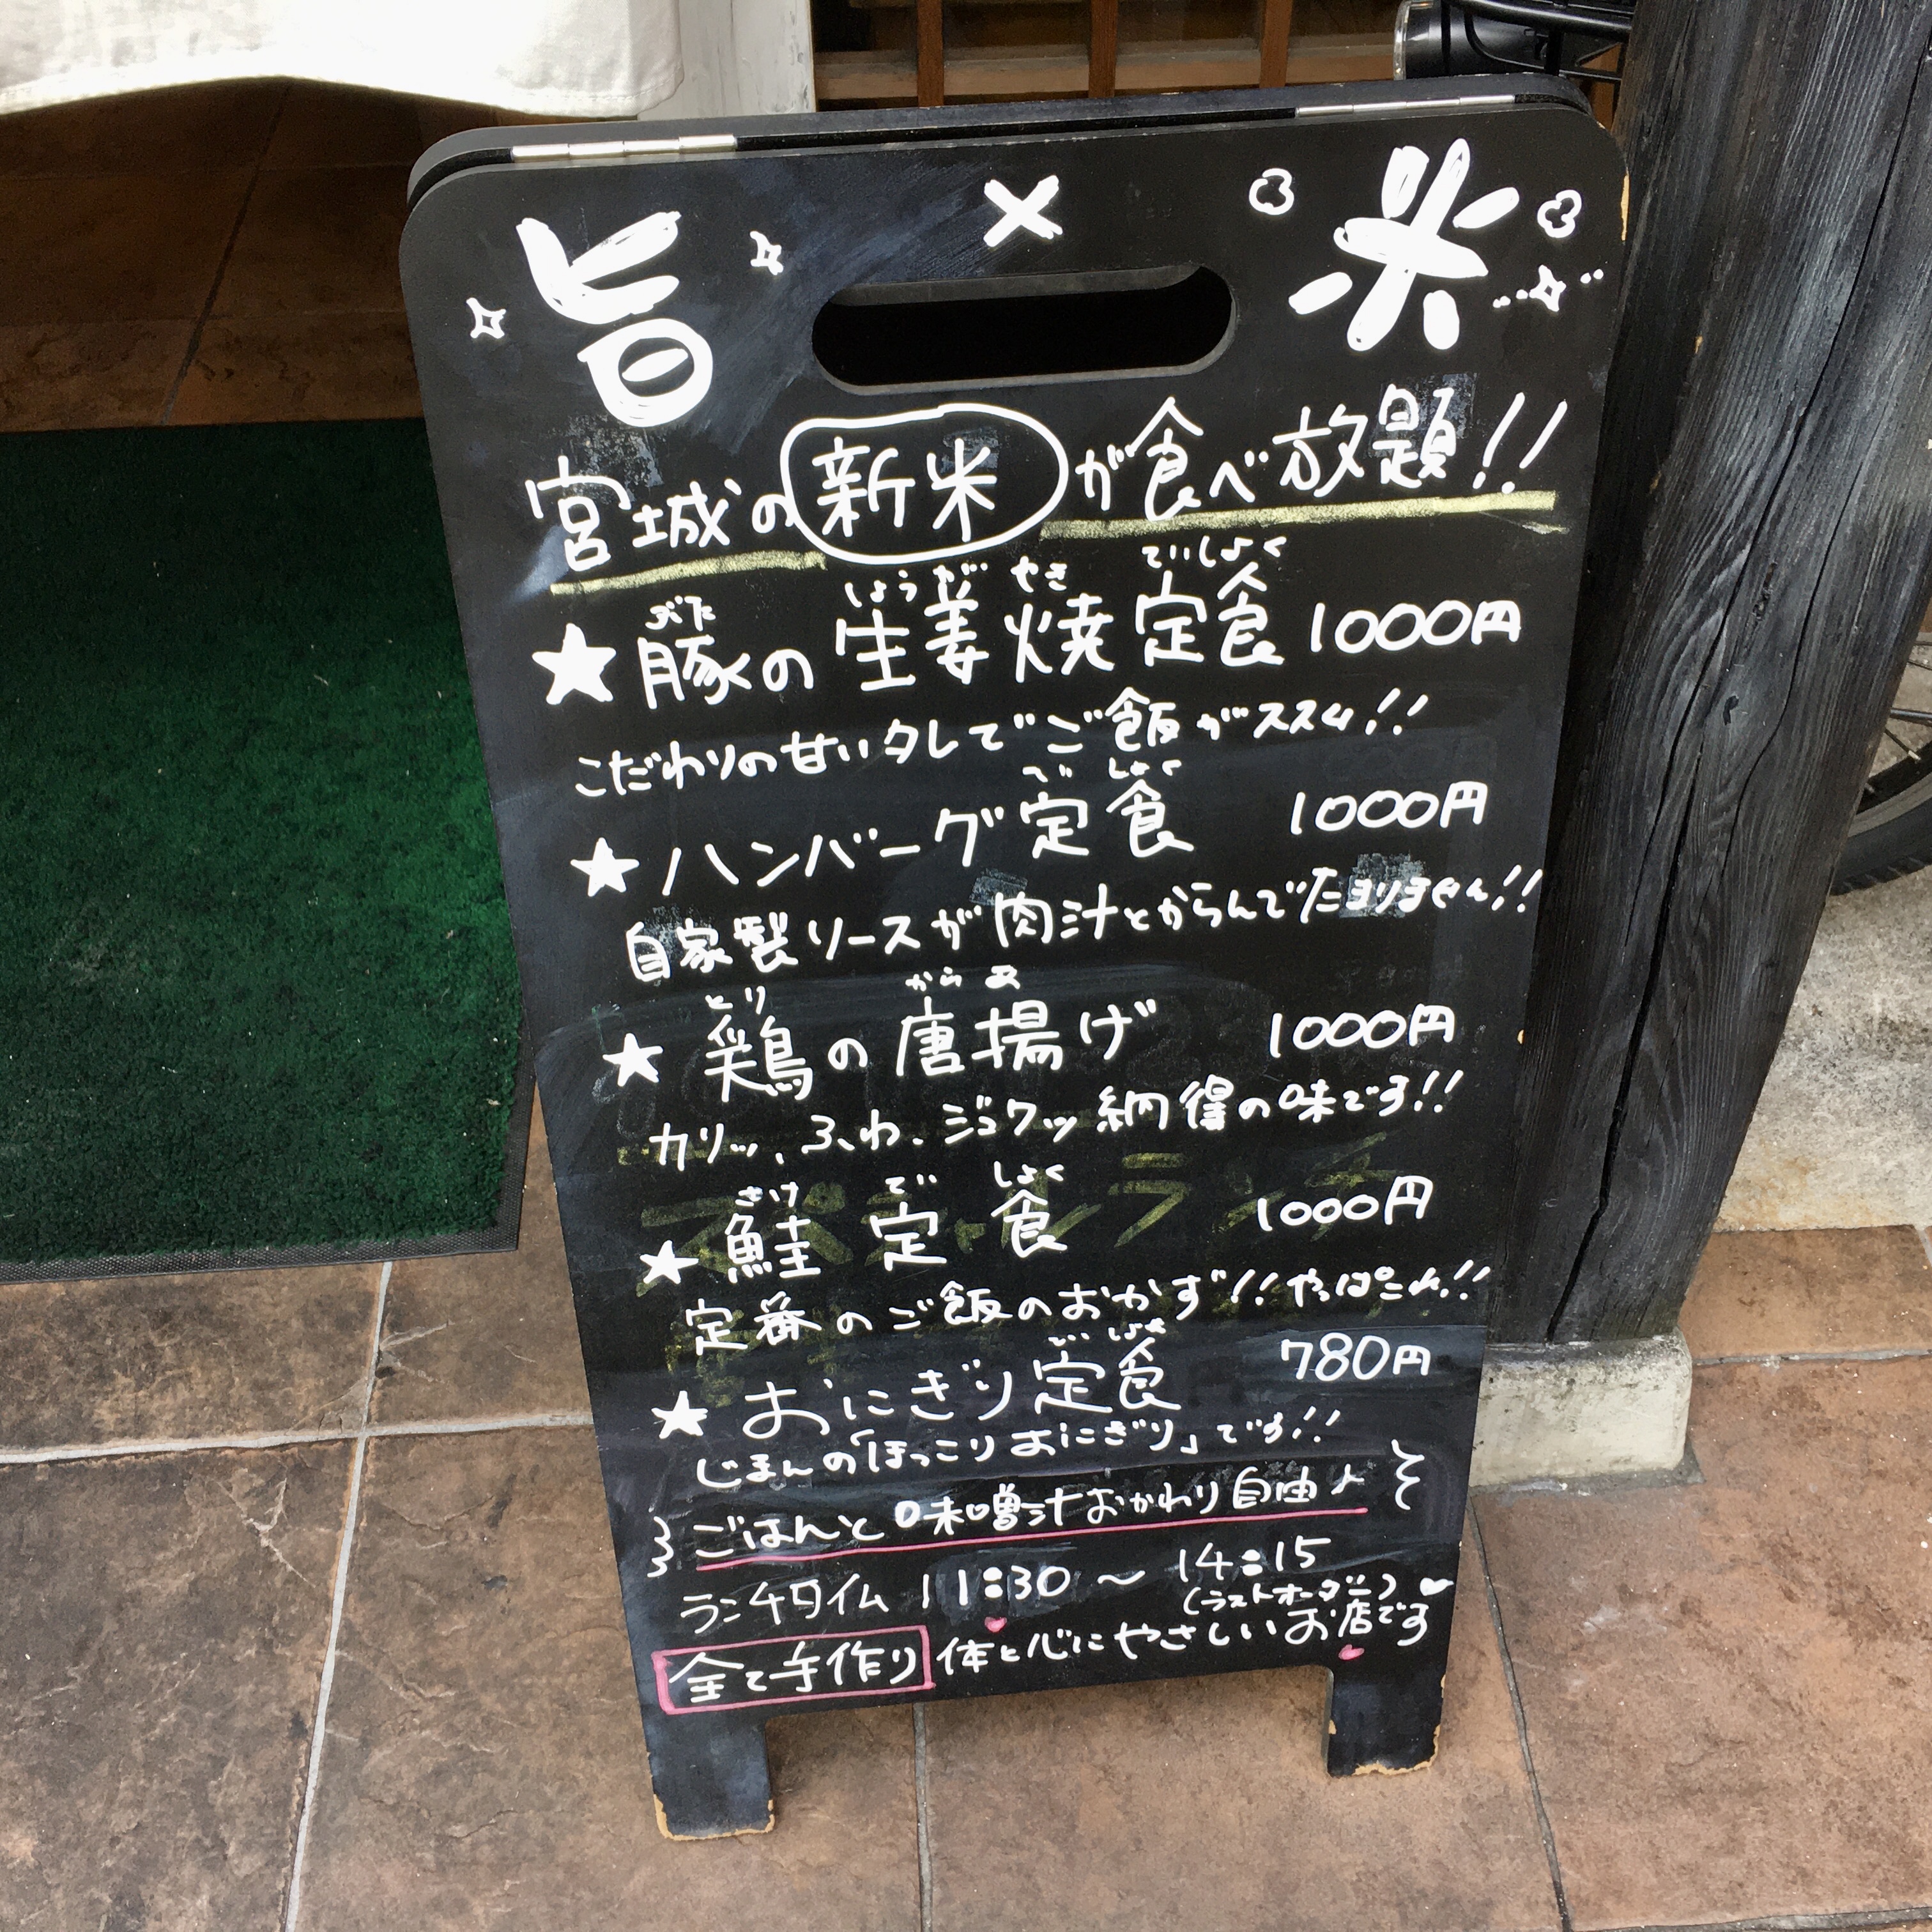 旨 × 米
宮城の新米が食べ放題!!
ぶた しょうが やき ていしょく
★豚の生姜焼定食 1000円
こだわりの甘いタレでご飯がススム!!
てい しょく
★ハンバーグ定食 1000円
自家製ソースが肉汁とからんでたまりません!!
とり からあ
★鶏の唐揚げ 1000円
カリッ、ふわ、ジュワッ納得の味です!!
さけ てい しょく
★鮭定食 1000円
定番のご飯のおかず!!やっぱこれ!!
てい しょく
★おにぎり定食 780円
じまんの「ほっこりおにぎり」です!!
ごはんと味噌汁おかわり自由♪
ランチタイム 11:30 ～ 14:15
(ラストオーダー)
全て手作り 体と心にやさしいお店です